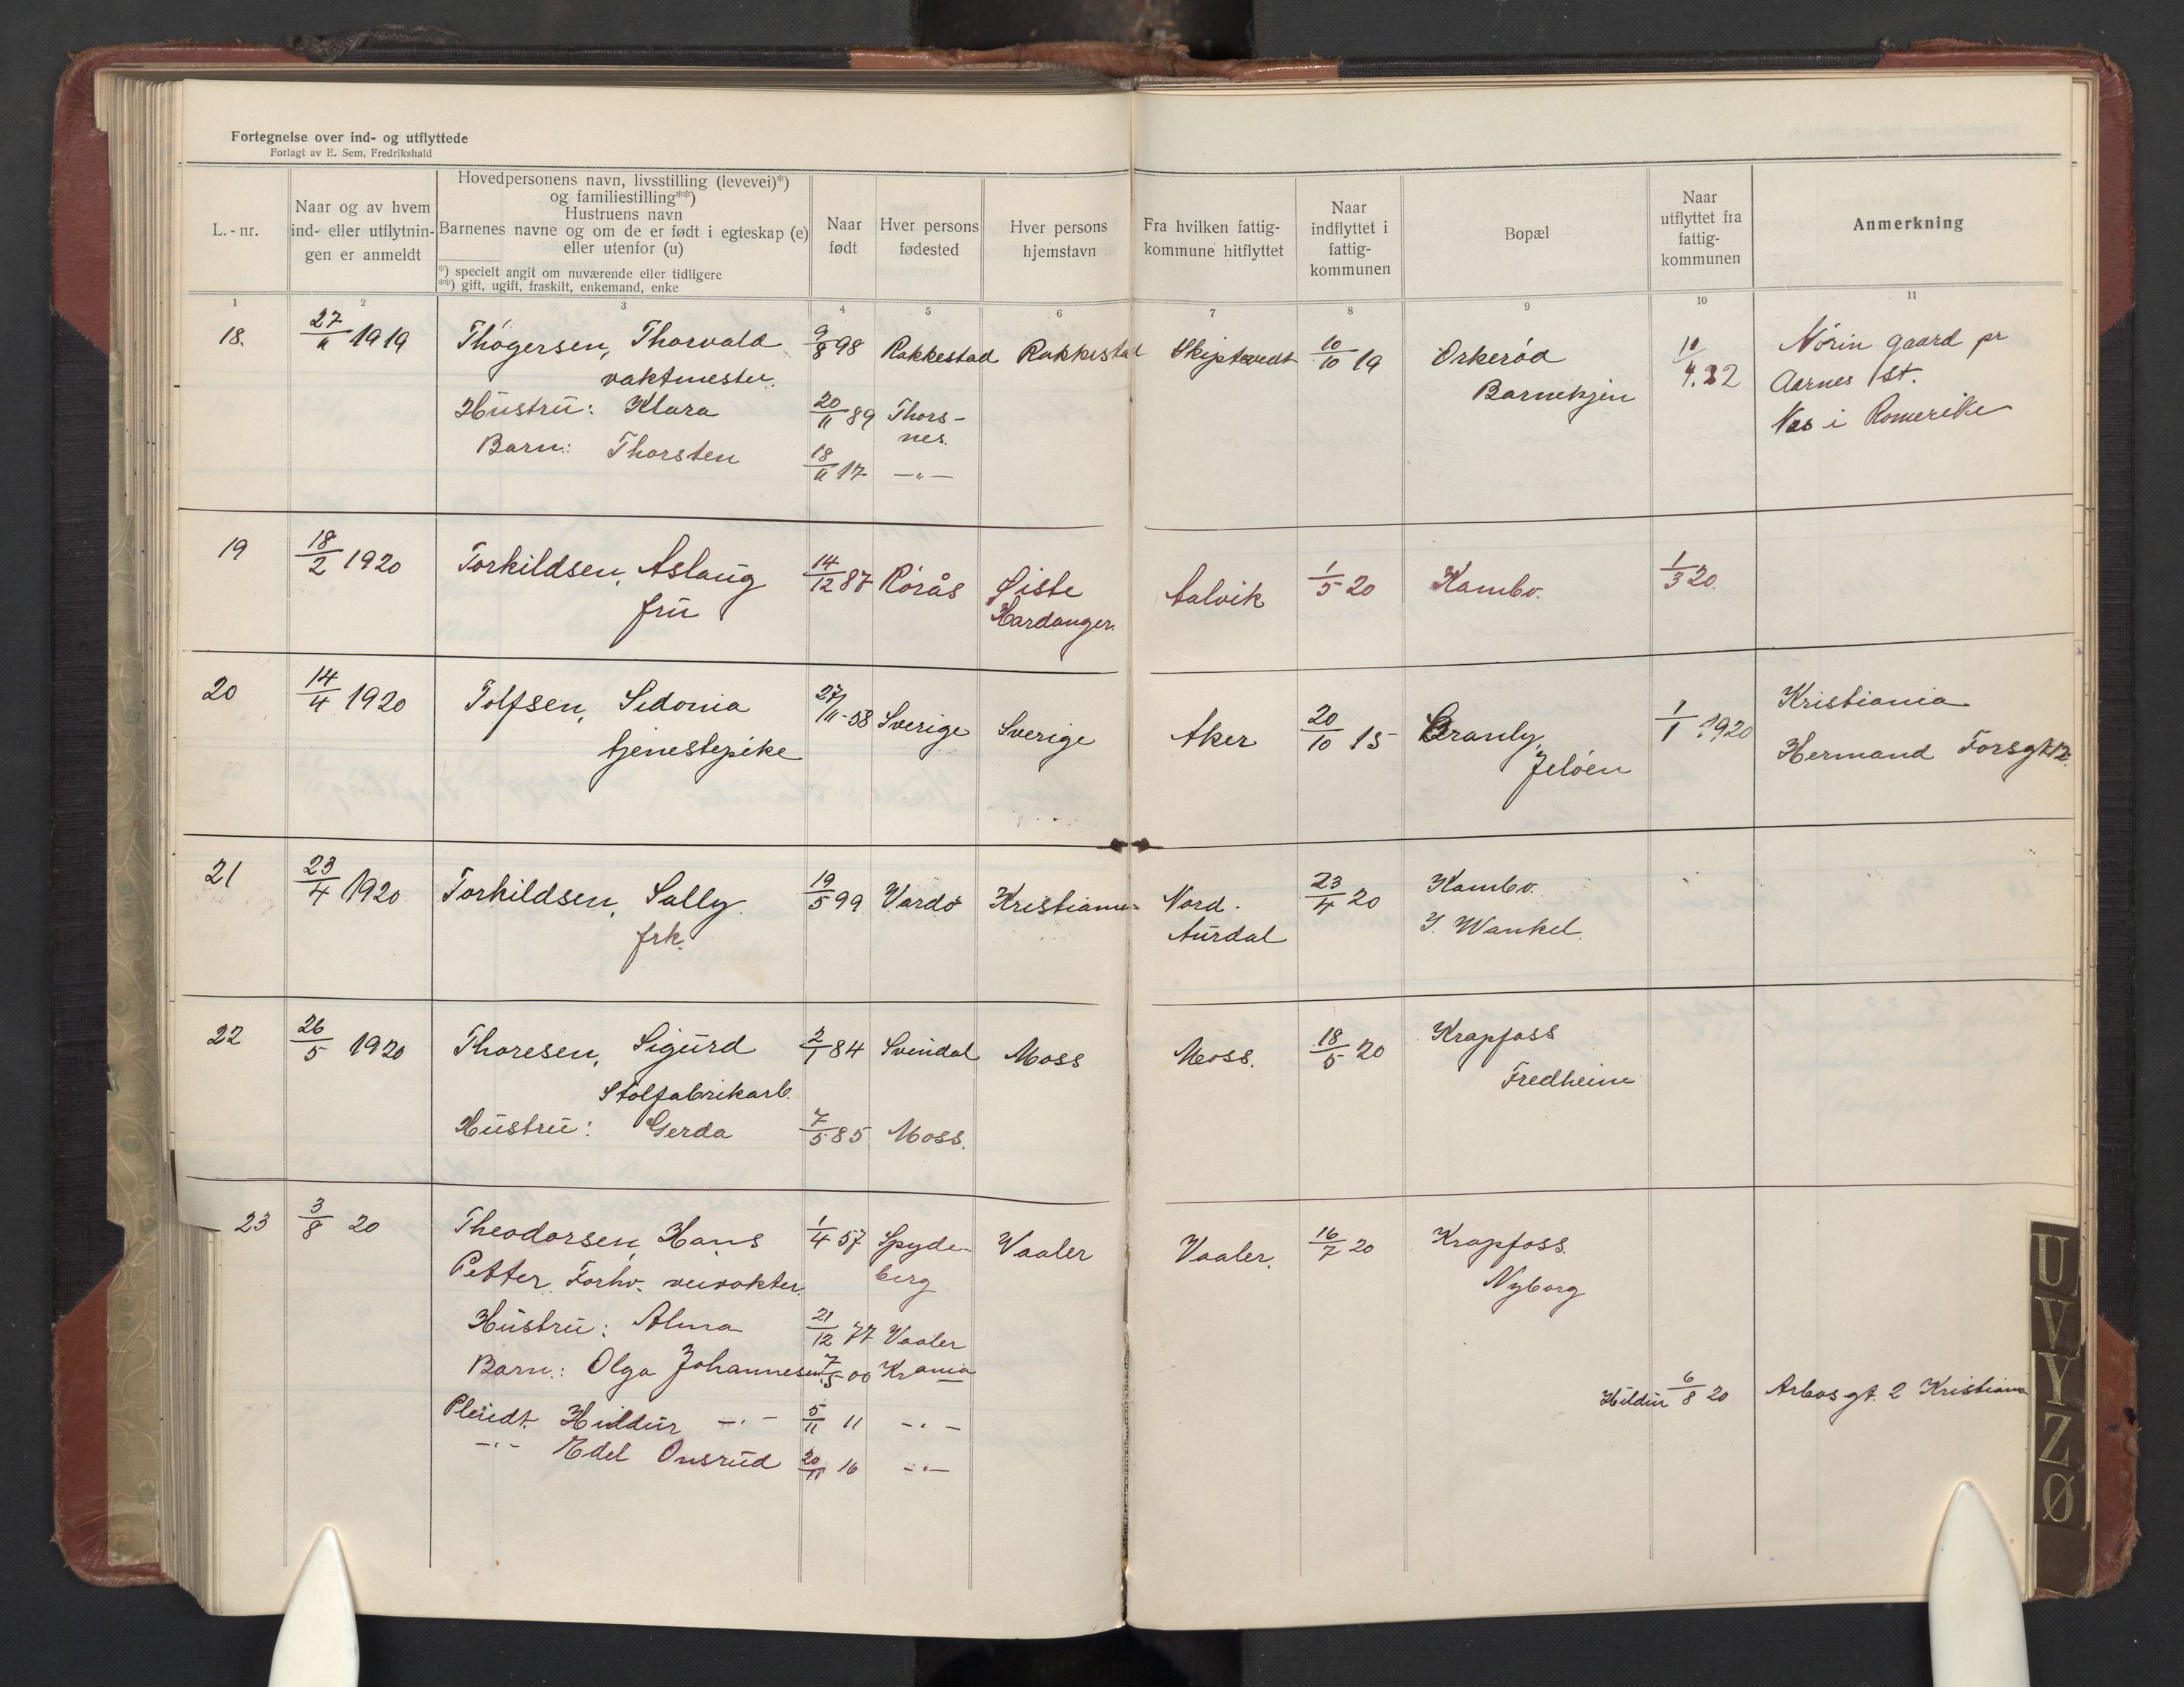 Fortegnelse over ind- og utflyttede
Forlagt av E. Sem, Fredrikshald
L.-nr.
Naar og av hvem
ind- eller utflytnin-
gen er anmeldt
Hovedpersonens navn, livsstilling (levevei)*)
og familiestilling**)
Hustruens navn
Barnenes navne og om de er født i egteskap (e)
eller utenfor (u)
*) specielt angit om nuværende eller tidligere
**) gift, ugift, fraskilt, enkemand, enke
Naar
født
Hver persons
fødested
Hver persons
hjemstavn
Fra hvilken fattig-
kommune hitflyttet
Naar
indflyttet i
fattig-
kommunen
Bopæl
Naar
utflyttet fra
fattig-
kommunen
Anmerkning
1 2 3 4 5 6 7 8 9 10 11
18. 27/11 1919 Thøgersen, Thorvald 9/8 98 Rakkestad Rakkestad Skiptvedt 10/10 19 Orkerød 10/4.22 Nörin gaard pr
vaktmester. Barnehjem Aarnes St.
Hustru: Klara 20/11 89 Thors- Nes i Romerike
nes.
Barn: Thorsten 18/11 17 —"—
19 18/2 1920 Torkildsen, Aslaug 14/12 87 Rørås Øiste Aalvik 1/5 20 Kambo. 1/3 20.
fru Hardanger.
20 14/4 1920 Tolfsen, Sidonia 27/11-58 Sverige Sverige Aker 20/10 15 Granly, 1/1 1920 Kristiania
tjenestepike Jeløen Hermand Forsgt 12.
21 23/4 1920 Torkildsen, Sally. 19/5 99 Vardø Kristiania Nord- 23/4 20 Kambo.
frk. Aurdal J. Wankel.
22 26/5 1920 Thoresen, Sigurd 2/1 84 Svindal Moss Moss. 18/5 20 Krapfoss
Stolfabrikarb. Fredheim
Hustru: Gerda 7/5 85 Moss.
23 3/8 20 Theodorsen, Hans 1/4 57 Spyde- Vaaler Vaaler. 16/7 20 Krapfoss.
Petter. Forhv. veivokter. berg Nyborg
Hustru: Alma 21/12 77 Vaaler
Barn: Olga Johannesen 7/5 00 Krania
Pleiedt. Hildur —"— 5/11 11 —"— Hildur 6/8 20 Arbosgt. 2 Kristiania
—"— Edel Onsrud 20/11 16 —"—
U
V
Y
Z
Ø